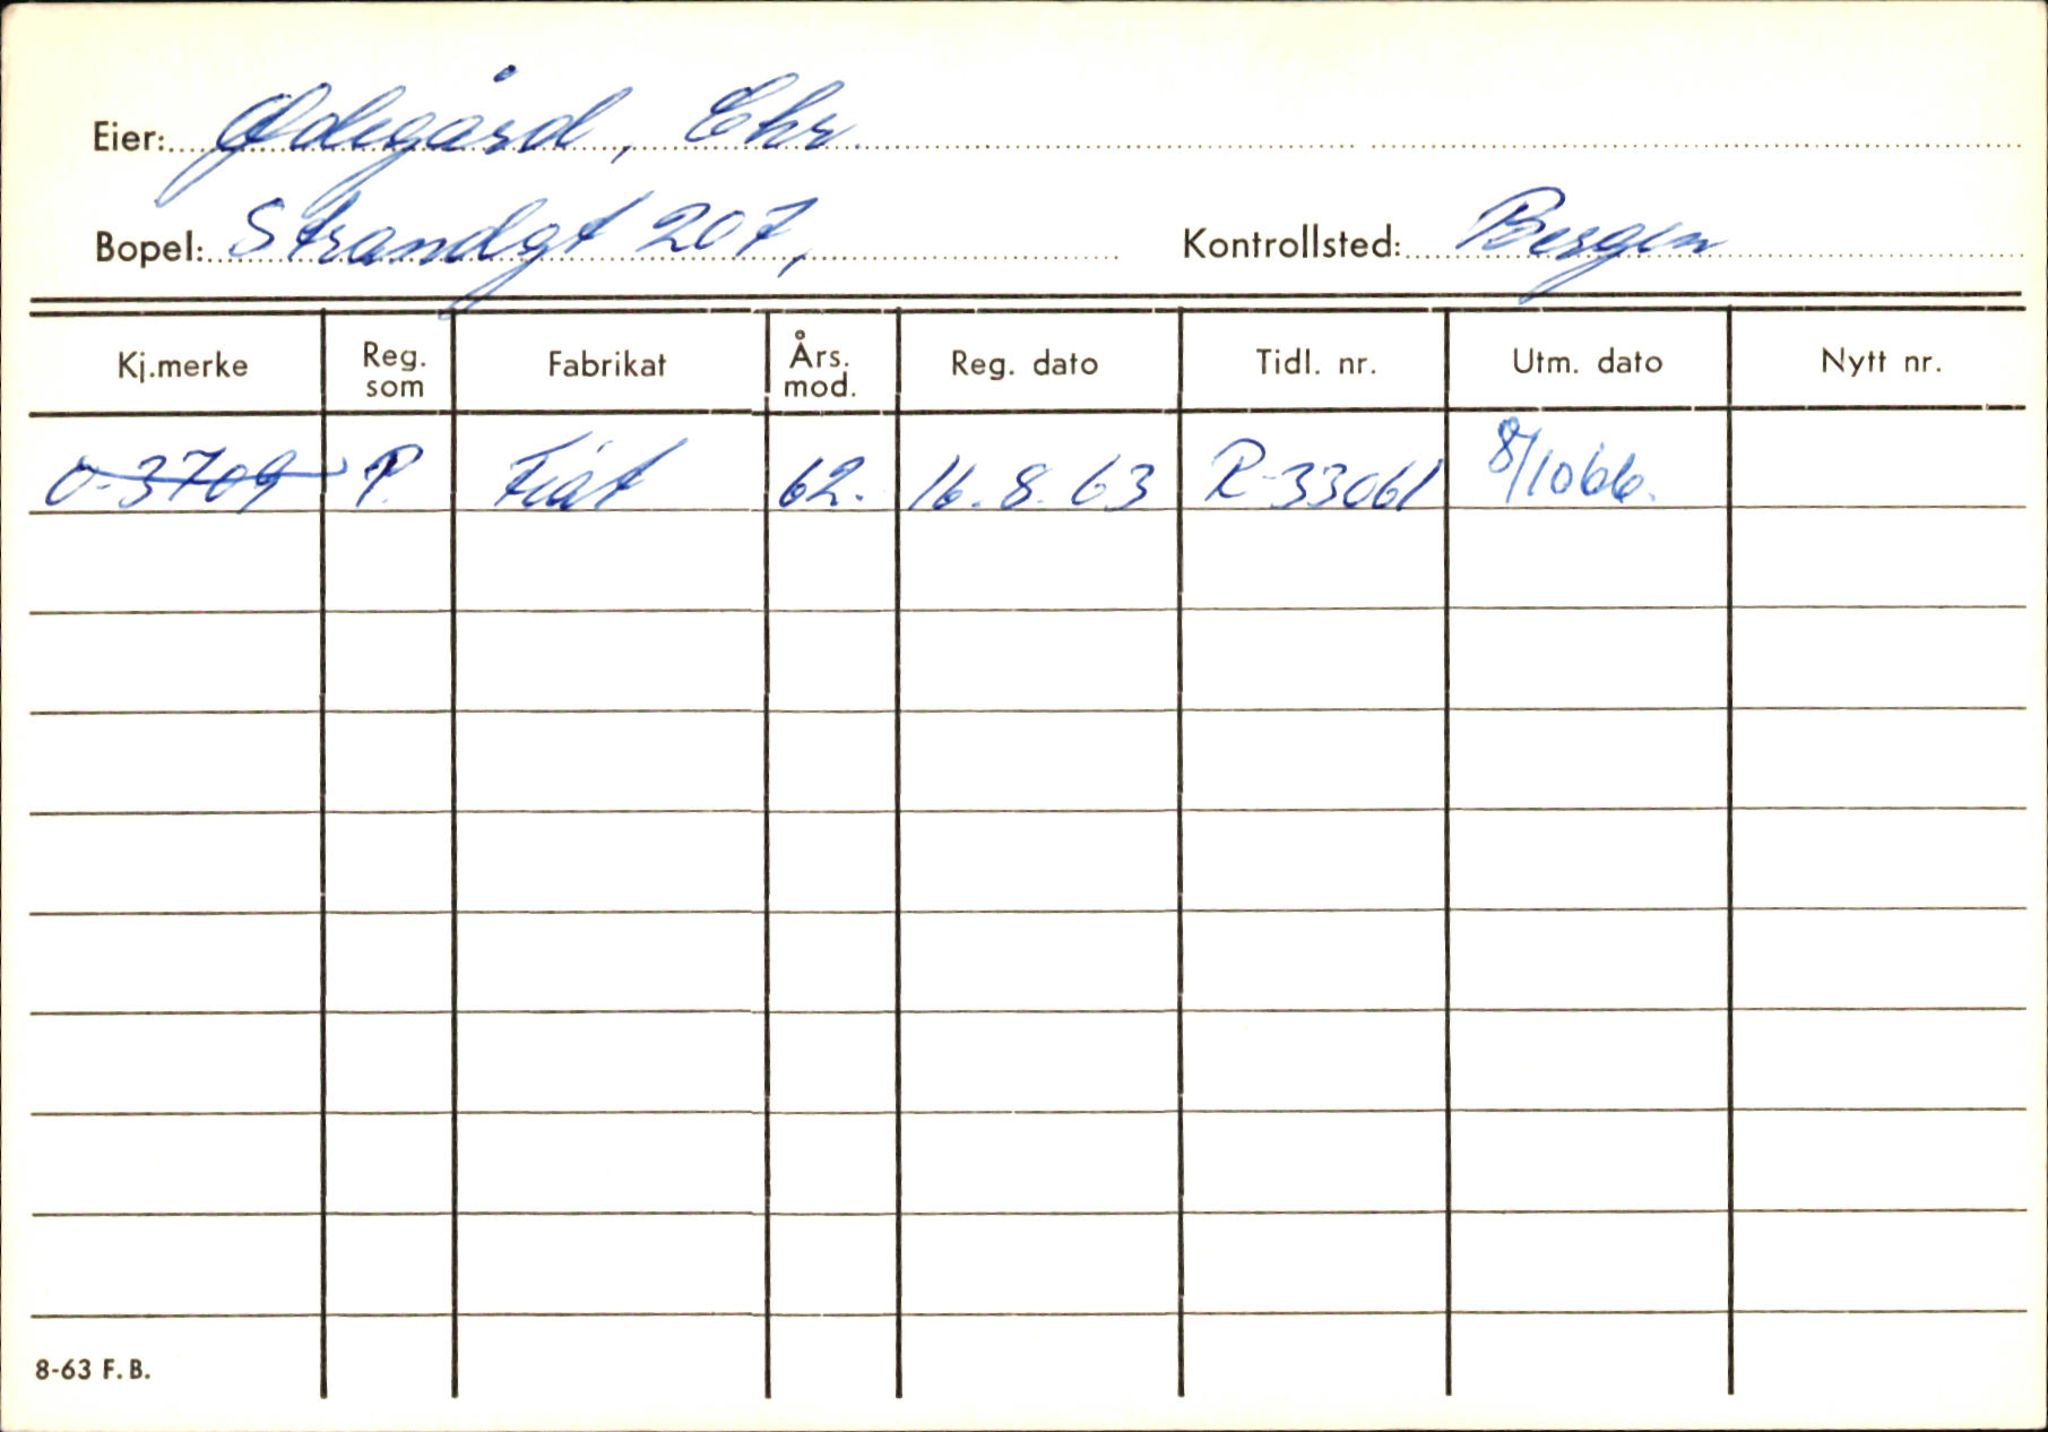 Eier: Ødegård, Chr.
Bopel: Strandgt 207, Kontrollsted: Bergen
Kj.merke Reg. som Fabrikat Års. mod. Reg. dato Tidl. nr. Utm. dato Nytt nr.
O-3709 P. Fiat 62. 16.8.63 R-33061 8/10 66.
8-63 F.B.